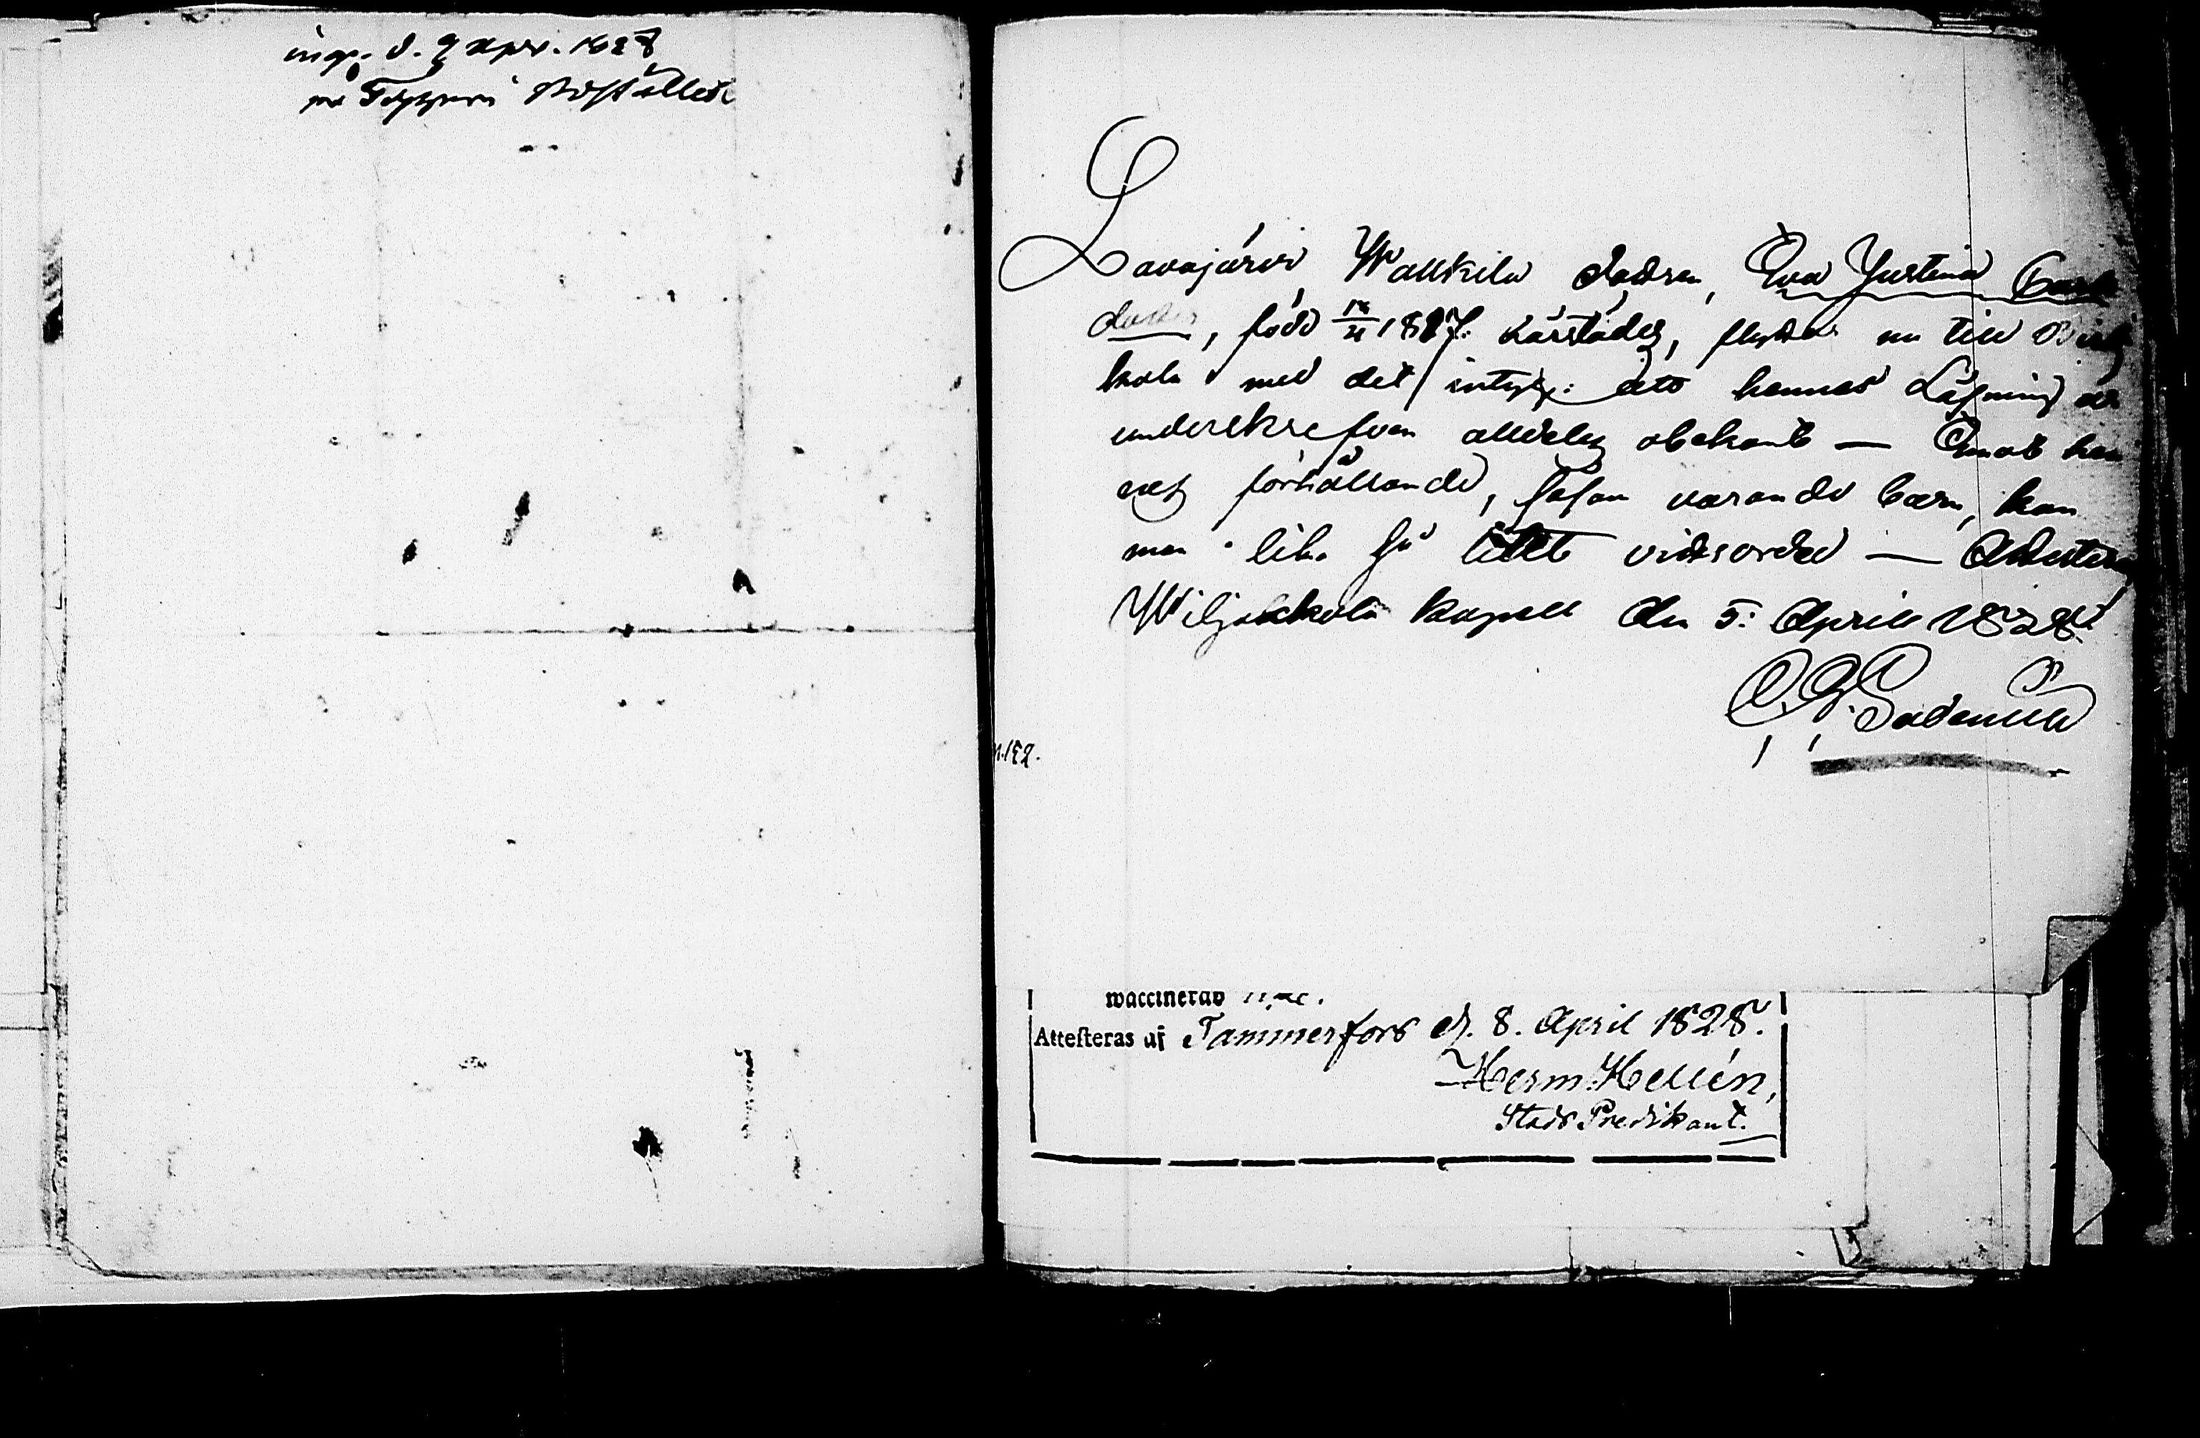 ingo. d. 9 apr. 1828
på Bostället
Lavajärvi Wallkila dodren, Eva Justina Carls
dotter, född 18/4 1817. härstädes, flyttar nu till Birk
kala med det intyg: att hennes Läsning är
underskrefven alldeles obekant — Emot hen
nes förhållande, såsom varande barn, kan
man lika så litet vidsorded — Attesteras
Wiljakkala kapell den 5: April 1828.
n. 152.
waccinerad
Attesteras af Tammerfors d. 8. April 1828.
Herm: Hellén,
Stads Predikant.